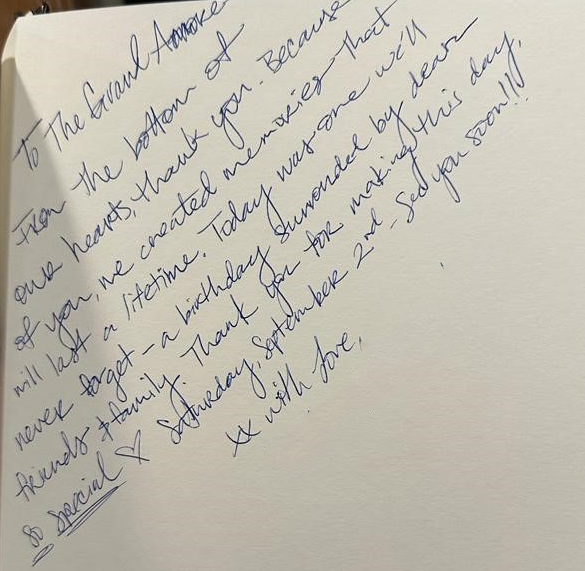 To The Grand
From the bottom of
our hearts, thank you. Because
of you, we created memories that
will last a lifetime. Today was one we'll
never forget - a birthday surrounded by dear
friends & family. Thank you for making this day,
so special ♡ Saturday, September 2nd - See you soon!!!
xx with love,